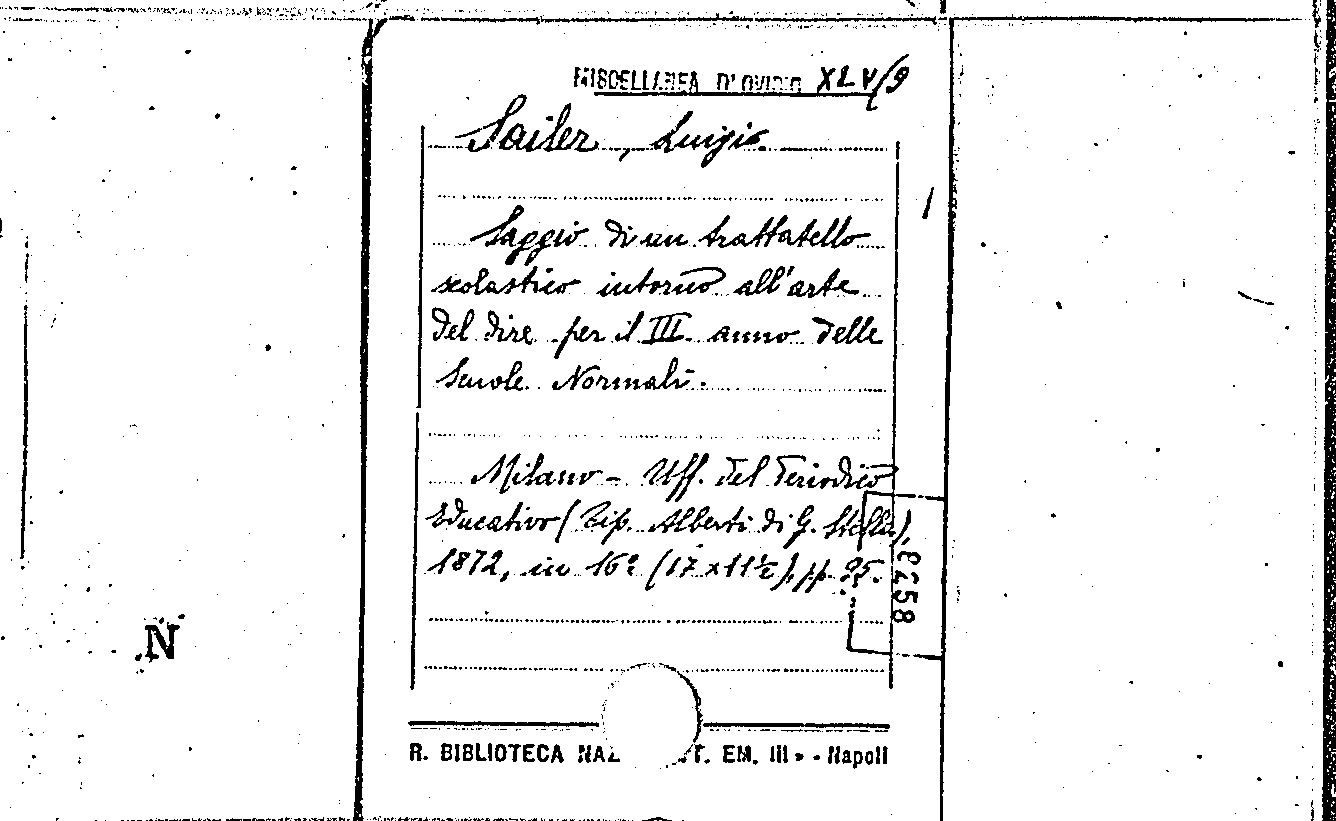 MISCELLANEA D'OVIDIO XLV/9
Sailer, Luigi.
Saggio di un trattatello
scolastico intorno all'arte
del dire per il III anno delle
Scuole Normali.
Milano - Uff. del Periodico
Educativo (Tip. Alberti di G. Stella),
1872, in 16º (17 x 11½), pp. 95.
8258
N
R. BIBLIOTECA NAZ T. EM. III - Napoli